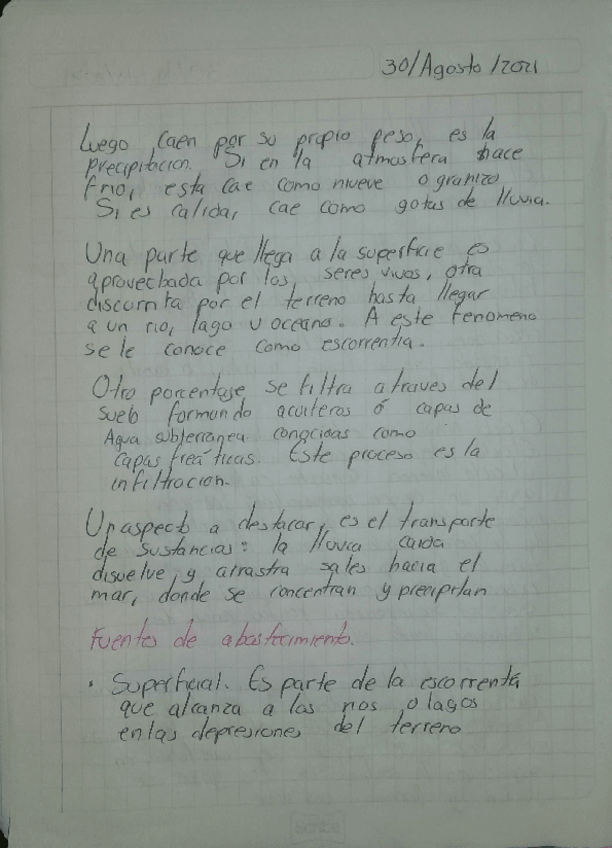 30/Agosto/2021
Luego caen por su propio peso, es la
precipitacion. Si en la atmosfera hace
frio, esta cae como nieve o granizo
Si es calida, cae como gotas de lluvia.
Una parte que llega a la superficie es
aprovechada por los seres vivos, otra
discurrita por el terreno hasta llegar
a un rio, lago u oceano. A este fenomeno
se le conoce como escorrentia.
Otro porcentaje se filtra a traves del
suelo formando acuiferos ó capas de
Agua subterranea conocidas como
capas freáticas. Este proceso es la
infiltracion.
Un aspecto a destacar, es el transporte
de sustancias: la lluvia caida
disuelve, y arrastra sales hacia el
mar, donde se concentran y precipitan
Fuentes de abastecimiento.
• Superficial. Es parte de la escorrentá
que alcanza a los rios, o lagos
en las depresiones del terreno
Scribe